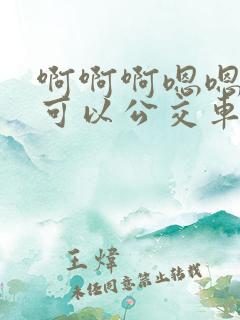 啊啊啊嗯嗯
可以公交車
王煒
未经同意禁止转载